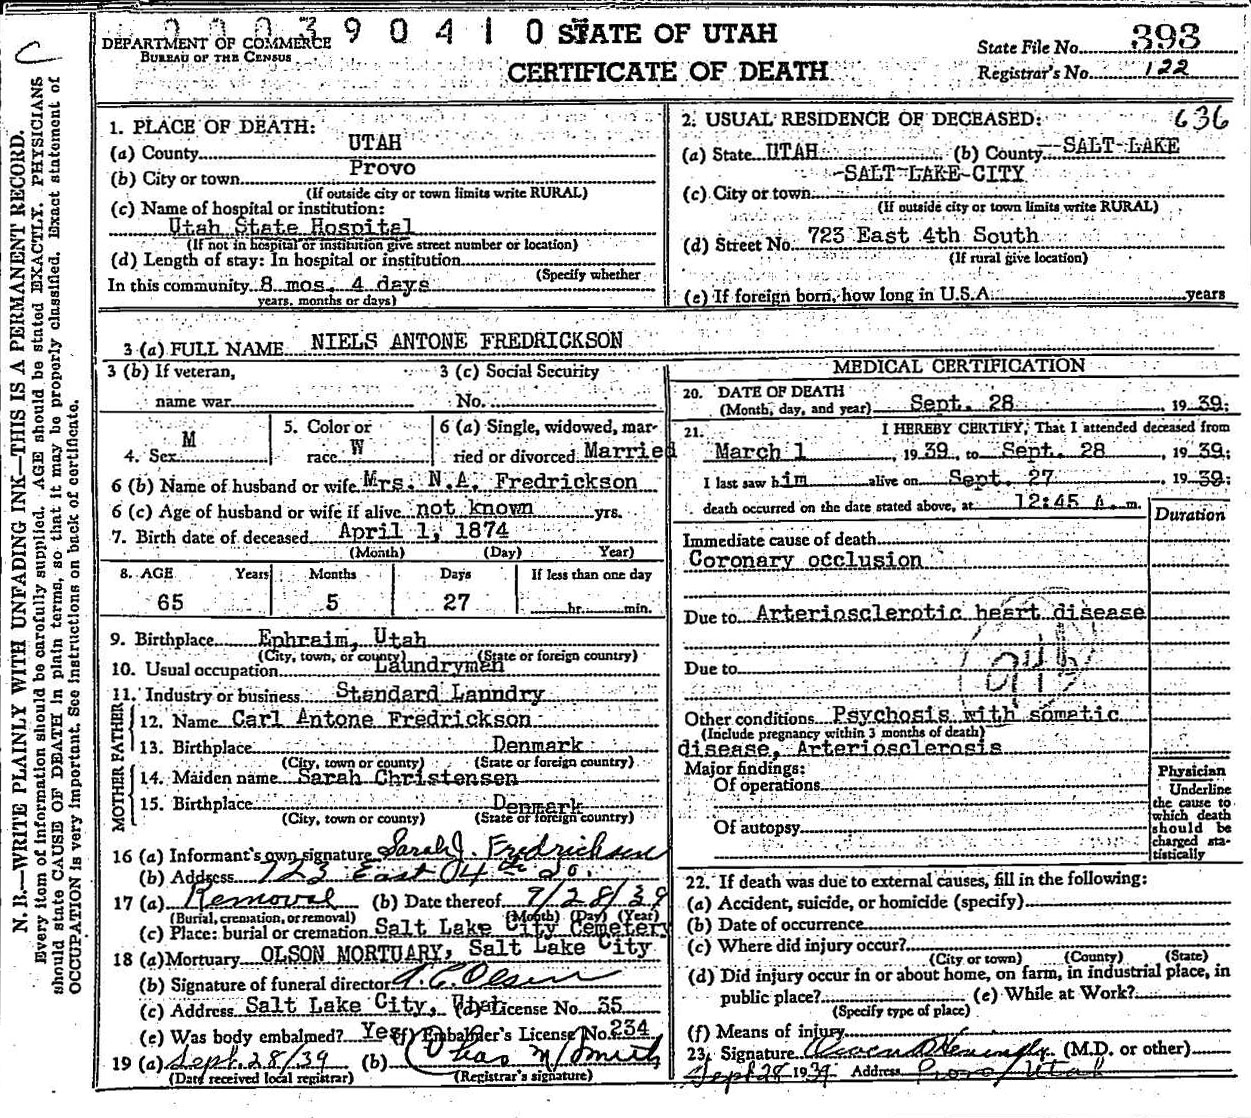 C
N. B.—WRITE PLAINLY WITH UNFADING INK—THIS IS A PERMANENT RECORD.
Every item of information should be carefully supplied. AGE should be stated EXACTLY. PHYSICIANS
should state CAUSE OF DEATH in plain terms, so that it may be properly classified. Exact statement of
OCCUPATION is very important. See instructions on back of certificate.
0 0 0 3 9 0 4 1 0
STATE OF UTAH
DEPARTMENT OF COMMERCE
BUREAU OF THE CENSUS
CERTIFICATE OF DEATH
State File No. 393
Registrar's No. 122
1. PLACE OF DEATH:
(a) County UTAH
(b) City or town Provo
(If outside city or town limits write RURAL)
(c) Name of hospital or institution:
Utah State Hospital
(If not in hospital or institution give street number or location)
(d) Length of stay: In hospital or institution
(Specify whether
In this community 8 mos. 4 days
years, months or days)
2. USUAL RESIDENCE OF DECEASED: 636
(a) State UTAH (b) County SALT LAKE
(c) City or town SALT LAKE CITY
(If outside city or town limits write RURAL)
(d) Street No. 723 East 4th South
(If rural give location)
(e) If foreign born, how long in U.S.A. years
3 (a) FULL NAME NIELS ANTONE FREDRICKSON
3 (b) If veteran, 3 (c) Social Security
name war No.
4. Sex M 5. Color or race W 6 (a) Single, widowed, married or divorced Married
6 (b) Name of husband or wife Mrs. N.A. Fredrickson
6 (c) Age of husband or wife if alive not known yrs.
7. Birth date of deceased April 1, 1874
(Month) (Day) Year)
8. AGE Years Months Days If less than one day
65 5 27 hr. min.
9. Birthplace Ephraim, Utah
(City, town, or county) (State or foreign country)
10. Usual occupation Laundrymen
11. Industry or business Standard Laundry
FATHER
12. Name Carl Antone Fredrickson
13. Birthplace Denmark
(City, town or county) (State or foreign country)
MOTHER
14. Maiden name Sarah Christensen
15. Birthplace Denmark
(City, town or county) (State or foreign country)
16 (a) Informant's own signature Sarah J. Fredricksen
(b) Address 723 East 04th So.
17 (a) Removal (b) Date thereof 9/28/39
(Burial, cremation, or removal) (Month) (Day) (Year)
(c) Place: burial or cremation Salt Lake City Cemetery
18 (a) Mortuary OLSON MORTUARY, Salt Lake City
(b) Signature of funeral director
(c) Address Salt Lake City, Utah (d) License No. 35
(e) Was body embalmed? Yes (f) Embalmer's License No. 234
19 (a) Sept. 28/39 (b) Chas M Smith
(Date received local registrar) (Registrar's signature)
MEDICAL CERTIFICATION
20. DATE OF DEATH
(Month, day, and year) Sept. 28, 1939;
21. I HEREBY CERTIFY, That I attended deceased from
March 1, 1939, to Sept. 28, 1939;
I last saw him alive on Sept. 27, 1939;
death occurred on the date stated above, at 12:45 A. m.
Duration
Immediate cause of death
Coronary occlusion
Due to Arteriosclerotic heart disease
94b
Due to
Other conditions Psychosis with somatic
(Include pregnancy within 3 months of death)
disease, Arteriosclerosis
Major findings:
Of operations
Of autopsy
Physician
Underline
the cause to
which death
should be
charged sta-
tistically
22. If death was due to external causes, fill in the following:
(a) Accident, suicide, or homicide (specify)
(b) Date of occurrence
(c) Where did injury occur?
(City or town) (County) (State)
(d) Did injury occur in or about home, on farm, in industrial place, in
public place? (e) While at Work?
(Specify type of place)
(f) Means of injury
23. Signature (M.D. or other)
Sept 28 1939 Address Provo, Utah